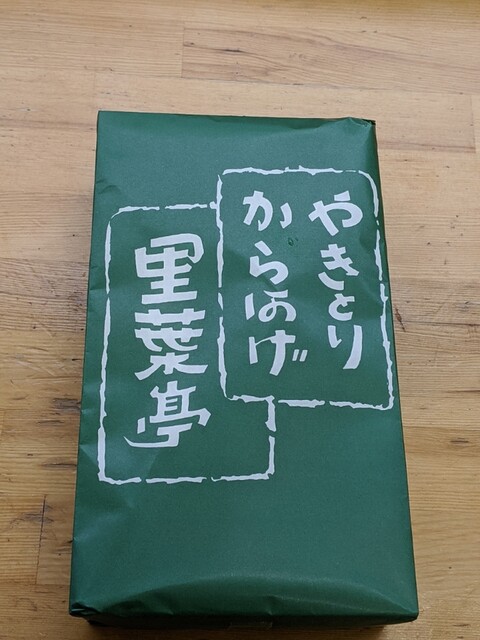 やきとり
からあげ
里葉亭